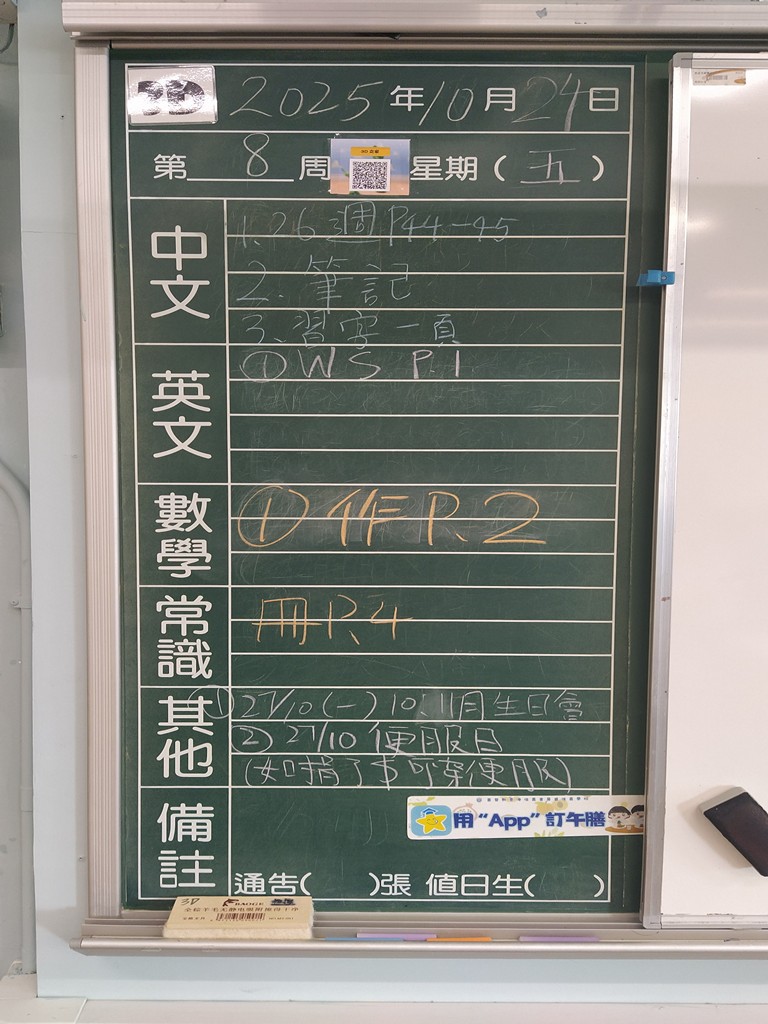 3D 2025年10月24日
第8周 星期(五)
中文
1. P.6 週 P44-45
2. 筆記
3. 習字一頁
英文
① WS P.1
數學
① 作 P.2
常識
冊 P.4
其他
① 27/10(一) 10、11月生日會
② 27/10 便服日
(如捐了$可穿便服)
備註
用“App”訂午膳
通告( )張 值日生( )
3D BAOGE